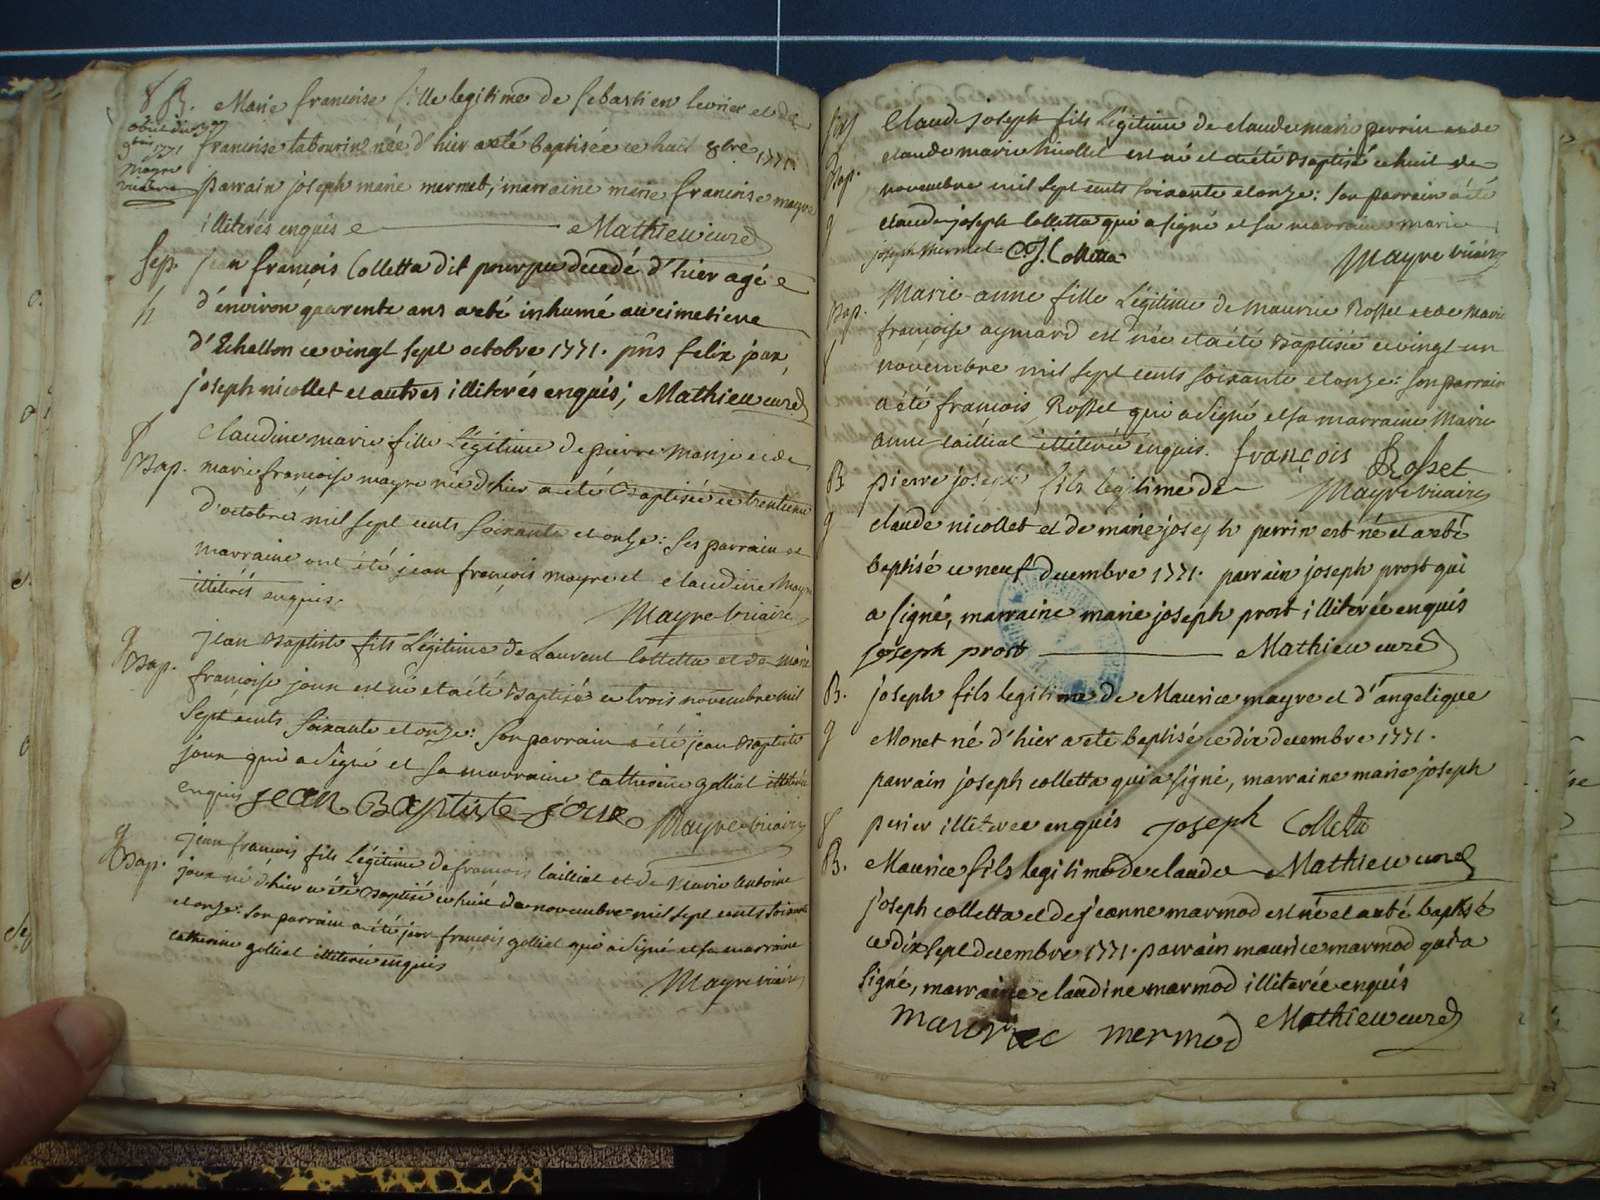 8 B. Marie francoise fille legitime de Sebastien levrier et de
francoise tabourin née d'hier a eté baptisée ce huit 8bre 1771
9bre 1771
mayre
vicaire
parrain joseph marie mermet, marraine marie francoise mayre
illiterés enquis Mathieu curé
Sep. jean françois Colletta dit pourpu decedé d'hier agé
h d'environ quarente ans a eté inhumé au cimetiere
d'Echallon ce vingt sept octobre 1771. pñs felix joux,
joseph nicollet et autres illiterés enquis; Mathieu curé
8 Claudine marie fille Légitime de pierre Manje et de
Bap. marie françoise mayre née d'hier a été Baptisée ce trentieme
d'octobre mil sept cents soixante et onze: ses parrain et
marraine ont été jean françois mayre et claudine Mayre
illiterés enquis.
Mayre vicaire
g jean Baptiste fils Légitime de Laurent Colletta et de Marie
Bap. françoise joux est né et a été Baptisé ce trois novembre mil
sept cents soixante et onze: son parrain a été jean Baptiste
joux qui a signé et sa marraine Catherine golliet illiterée
enquis jean Baptiste joux Mayre vicaire
g jean francois fils Légitime de francois tailliat et de Marie Antoine
Bap. joux né d'hier a été Baptisé ce huit de novembre mil sept cents soixante
et onze: son parrain a été jean françois golliet qui a signé et sa marraine
Catherine golliet illiterée enquis
Mayre vicaire
Claude joseph fils Légitime de claude marie perrin et de
Bap. claude marie Nicollet est né et a été Baptisé ce huit de
novembre mil sept cents soixante et onze: son parrain a été
g claude joseph Colletta qui a signé et sa marraine marie
joseph Mermet = C. J. Colletta Mayre vicaire
Bap. Marie anne fille Légitime de Maurice Rosset et de Marie
françoise aymard est née et a été Baptisée ce vingt un
novembre mil sept cents soixante et onze: son parrain
a été francois Rosset qui a signé et sa marraine Marie
anne tailliat illiterée enquis. françois Rosset
B pierre joseph fils legitime de Mayre vicaire
g claude nicollet et de marie joseph perrin est né et a eté
baptisé ce neuf decembre 1771. parrain joseph prost qui
a signé, marraine marie joseph prost illiterée enquis
joseph prost Mathieu curé
B. joseph fils legitime de Maurice mayre et d'angelique
g Monet né d'hier a eté baptisé ce dix decembre 1771.
parrain joseph colletta qui a signé, marraine marie joseph
8 perier illiterée enquis joseph Colletta
B. Maurice fils legitime de claude Mathieu curé
joseph colletta et de jeanne marmod est né et a eté baptisé
ce dix sept decembre 1771. parrain maurice marmod qui a
signé, marraine claudine marmod illiterée enquis
maurice mermod Mathieu curé